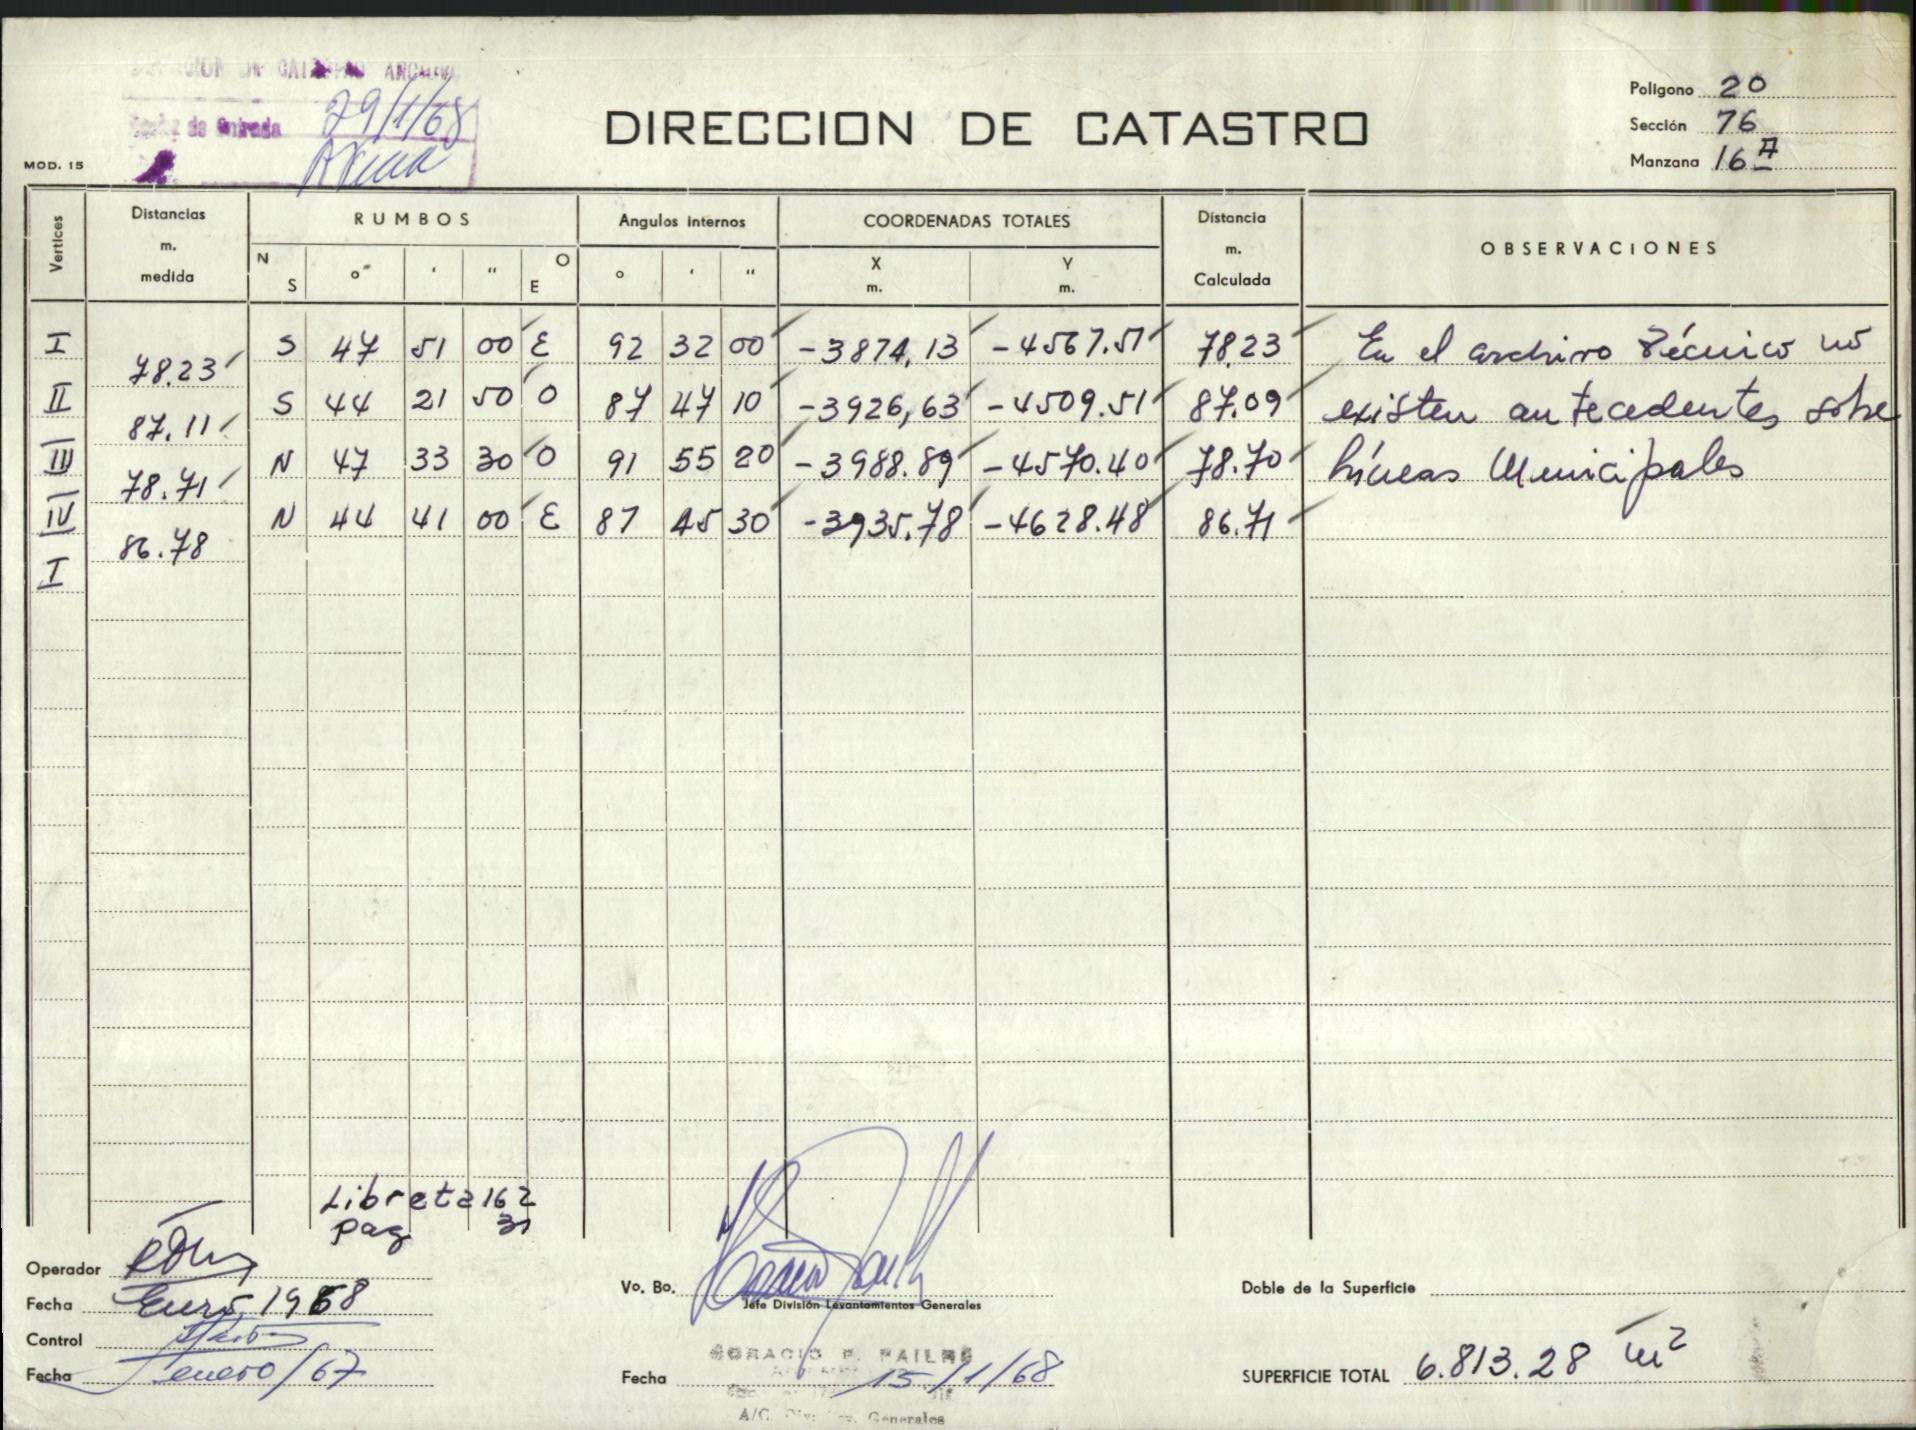 DIRECCION DE CATASTRO ARCHIVO
Fecha de Entrada 29/1/68
DIRECCION DE CATASTRO
Polígono 20
Sección 76
Manzana 16 A
MOD. 15
Vertices
Distancias m. medida
RUMBOS
N S ° ' " O E
Angulos Internos
° ' "
COORDENADAS TOTALES
X m. Y m.
Distancia m. Calculada
OBSERVACIONES
I S 47 51 00 E 92 32 00 -3874,13 -4567.51 78.23 En el archivo técnico no
78.23
II S 44 21 50 O 87 47 10 -3926,63 -4509.51 87.09 existen antecedentes sobre
87.11
III N 47 33 30 O 91 55 20 -3988.89 -4570.40 78.70 líneas Municipales
78.71
IV N 44 41 00 E 87 45 30 -3935,78 -4628.48 86.71
86.78
I
Libreta 162
pag 31
Operador
Fecha Enero, 1968
Control
Fecha enero/67
Vo. Bo.
Jefe División Levantamientos Generales
HORACIO
Fecha 15/1/68
A/C. Div. Lev. Generales
Doble de la Superficie
SUPERFICIE TOTAL 6.813.28 m²